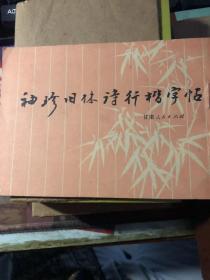 袖珍旧体诗行楷字帖
江西人民出版社